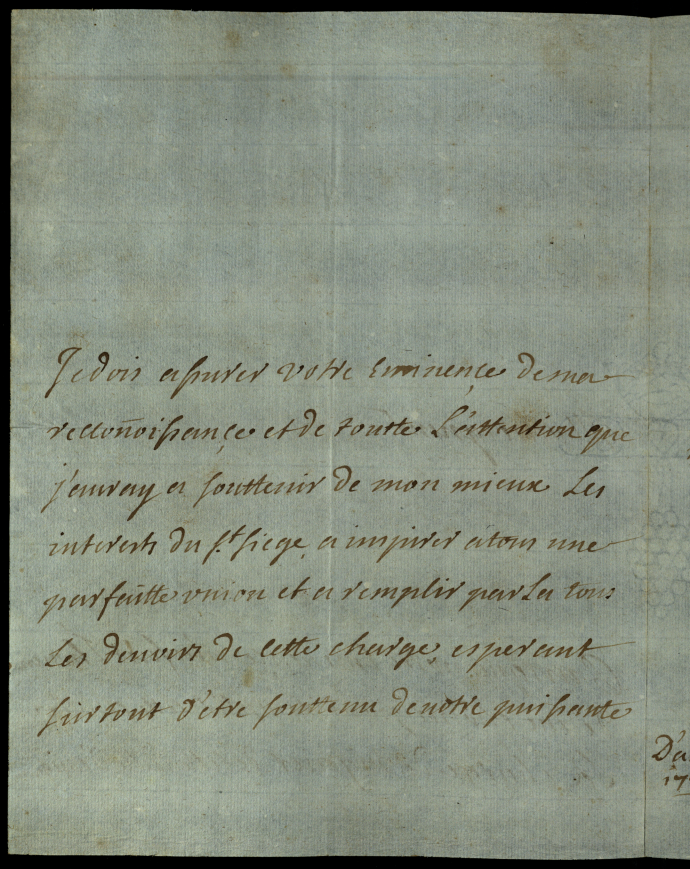 Je dois assurer votre Eminençe de ma
reconnoissançe et de toutte L'attention que
j'auray a souttenir de mon mieux Les
interests du st. siege, a inspirer a tous une
parfaitte union et a remplir par La tous
Les devoirs de cette charge, esperant
surtout d'etre souttenu de votre puissante
D'a
17